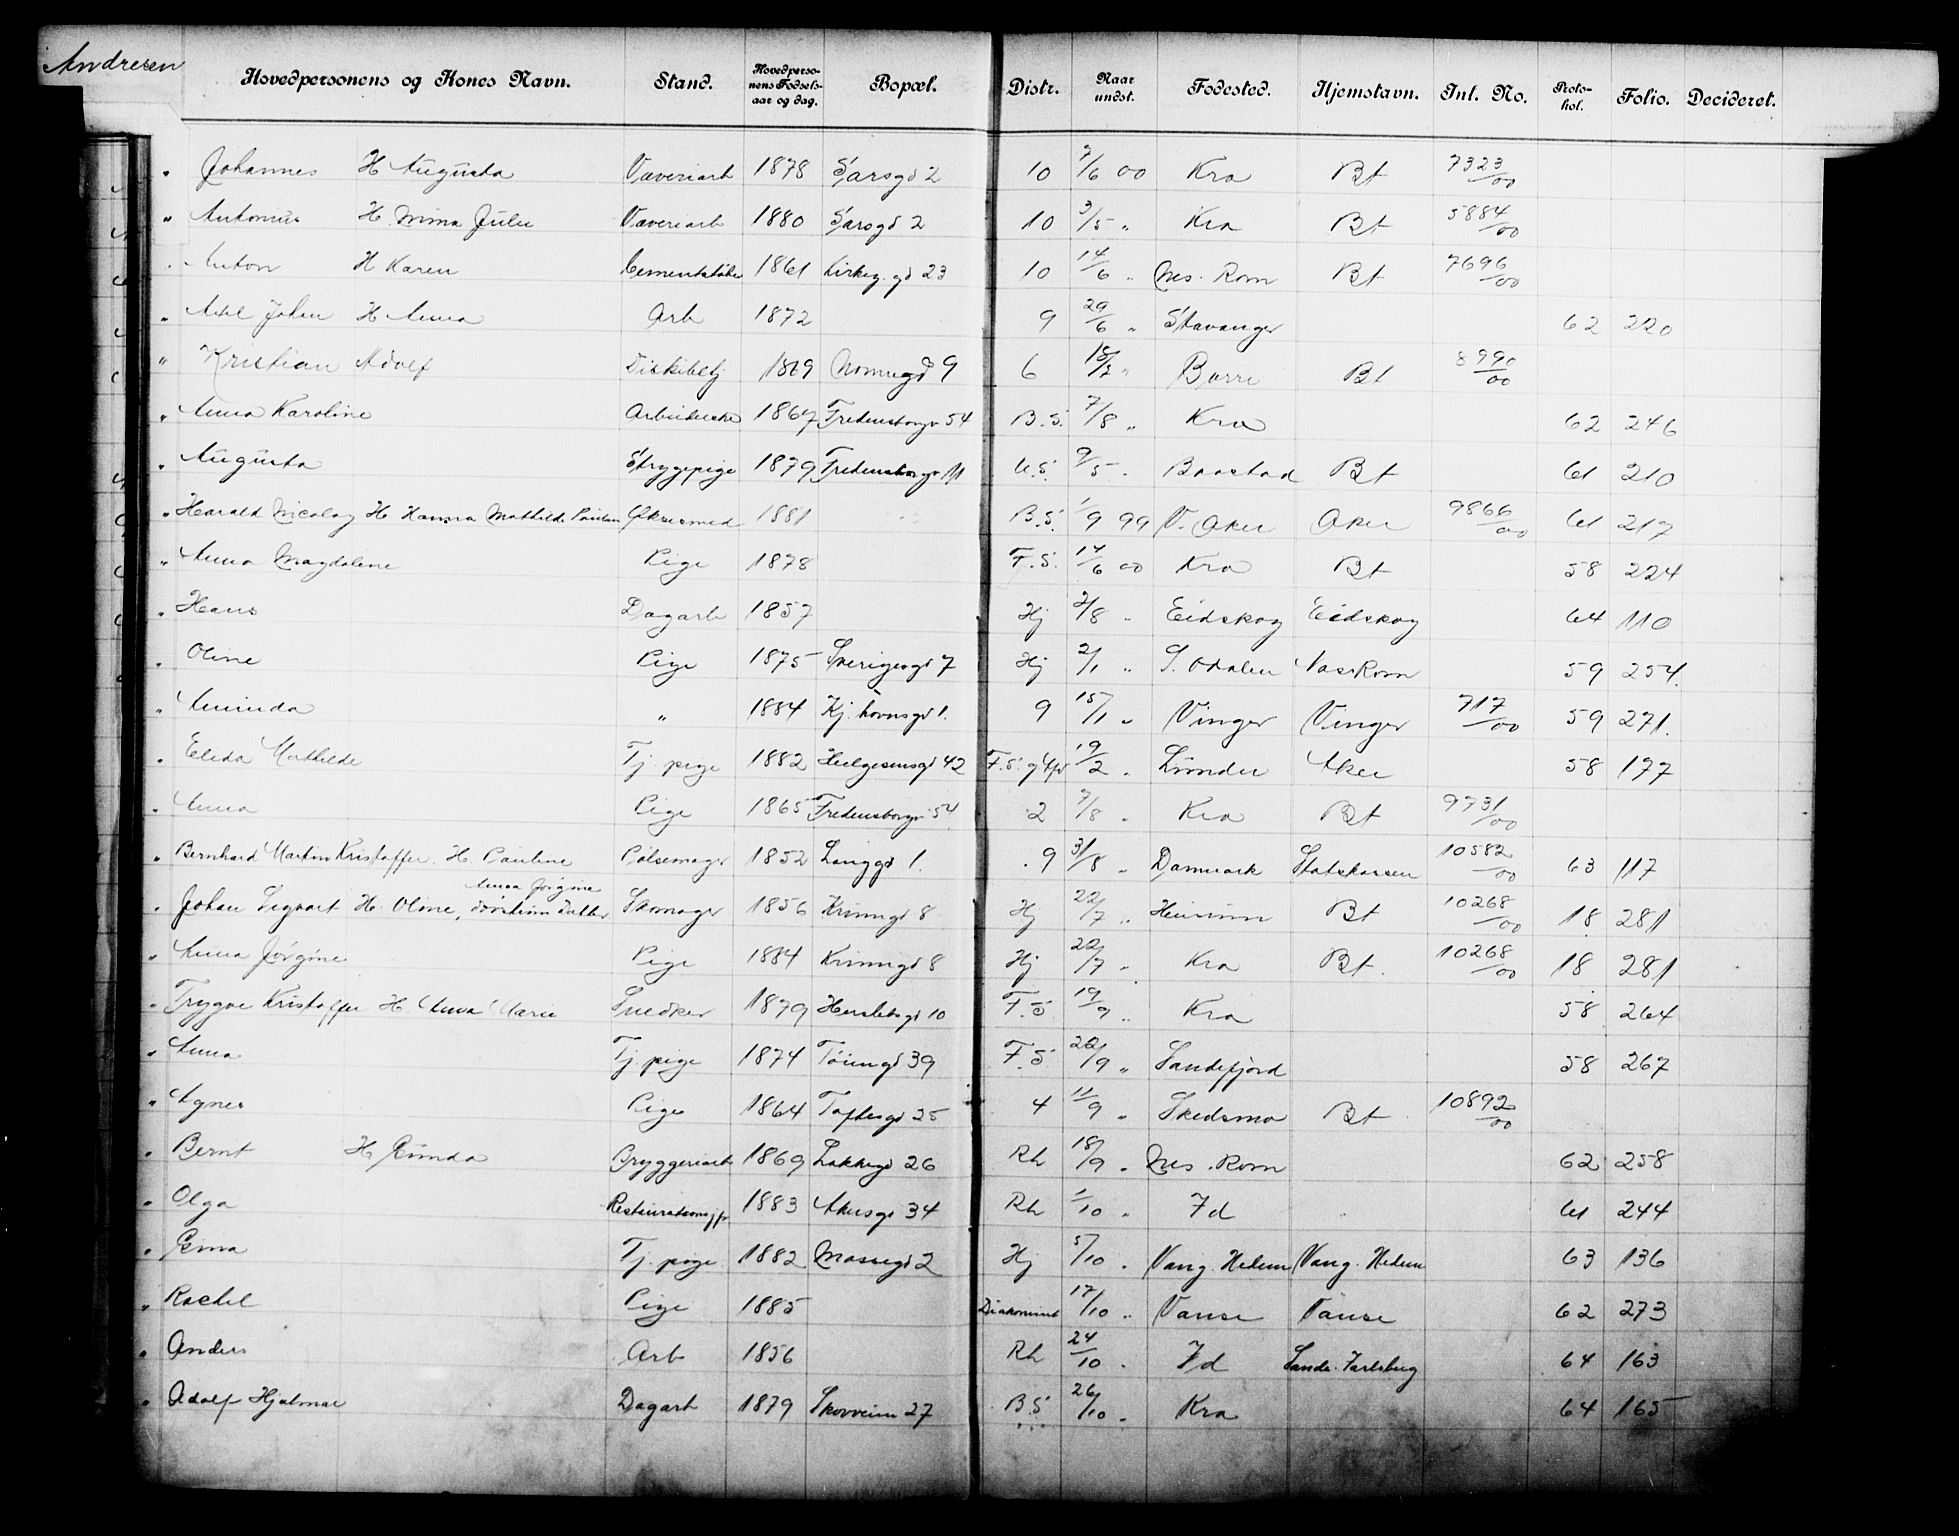 Andresen
Hovedpersonens og Kones Navn. Stand. Hovedpersonens Fødselsaar og dag. Bopæl. Distr. Naar undst. Fødested. Hjemstavn. Int. No. Protokol. Folio. Decideret.
" Johannes H Augusta Væveriarb 1878 Sarsgd 2 10 7/6 00 Kra Bt 7323/00
" Antonius H. Mina Julie Væveriarb 1880 Sarsgd 2 10 3/5 " Kra Bt 5884/00
" Anton H Karen 1861 Kirkeg.gd 23 10 14/6 " Nes. Rom Bt 7696/00
" Axel Johan H Anna Arb 1872 9 29/6 " Stavanger 62 220
" Kristian Adolf 1869 9 6 18/7 " Borre Bt 8990/00
" Anna Karoline Arbeiderske 1867 Fredensborgv 54 B.S. 7/8 " Kra 62 246
" Augusta Strygepige 1879 Fredensborgv 11 U.S. 9/5 " Baastad Bt 61 210
" Harald Nicolay H Hanna Mathilde Paulsen 1881 B.S. 1/9 99 V. Aker Aker 9866/00 61 217
" Anna Magdalene Pige 1878 F.S. 14/6 00 Kra Bt 58 224
" Hans Dagarb 1857 Hj 2/8 " Eidskog Eidskog 64 110
" Oline Pige 1875 Sverigesgd 7 Hj 2/1 " S. Odalen Nas Rom 59 254.
" Aminda " 1884 Kj.havnsgd 1. 9 15/1 " Vinger Vinger 717/00 59 271.
" Elida Mathilde Tj. pige 1882 Helgesensgd 42 F.S. 19/2 " Lunder Aker 58 177
" Anna Pige 1865 Fredensborgv 54 2 7/8 " Kra Bt 9731/00
" Bernhard Martin Kristoffer. H. Pauline Pølsemager 1852 Langgd 1. 9 31/8 " Danmark Statskassen 10582/00 63 117
Anna Jørgine
" Johan Sigvart H. Oline, datter Skomager 1856 Krumgd 8 Hj 22/7 " Bt 10268/00 18 281
" Anna Jørgine Pige 1884 Krumgd 8 Hj 22/7 " Kra Bt. 10268/00 18 281
" Trygve Kristoffer H. Anna Marie Snedker 1879 Herslebsgd 10 F.S. 19/9 " Kra 58 264
" Anna Tj. pige 1874 Tøiengd 39 F.S. 22/9 " Sandefjord 58 267
" Agnes Pige 1864 Toftesgd 25 4 11/9 " Skedsmo Bt 10892/00
" Bernt H Gunda Bryggeriarb 1869 Lakkegd 26 Rh 18/9 " Nes. Rom 62 258
" Olga Restaurationsjfr 1883 Akersgd 34 Rh 1/10 " Id 61 244
" Gina Tj. pige 1882 Mossegd 2 Hj 5/10 " Vang. Hedem Vang. Hedem 63 136
" Rachel Pige 1885 Diakonissh 17/10 " Vanse Vanse 62 273
" Anders Arb 1856 Rh 24/10 " Id Sande. Jarlsberg 64 163
" Adolf Hjalmar Dagarb 1879 Skovveien 27 B.S. 26/10 " Kra 64 165